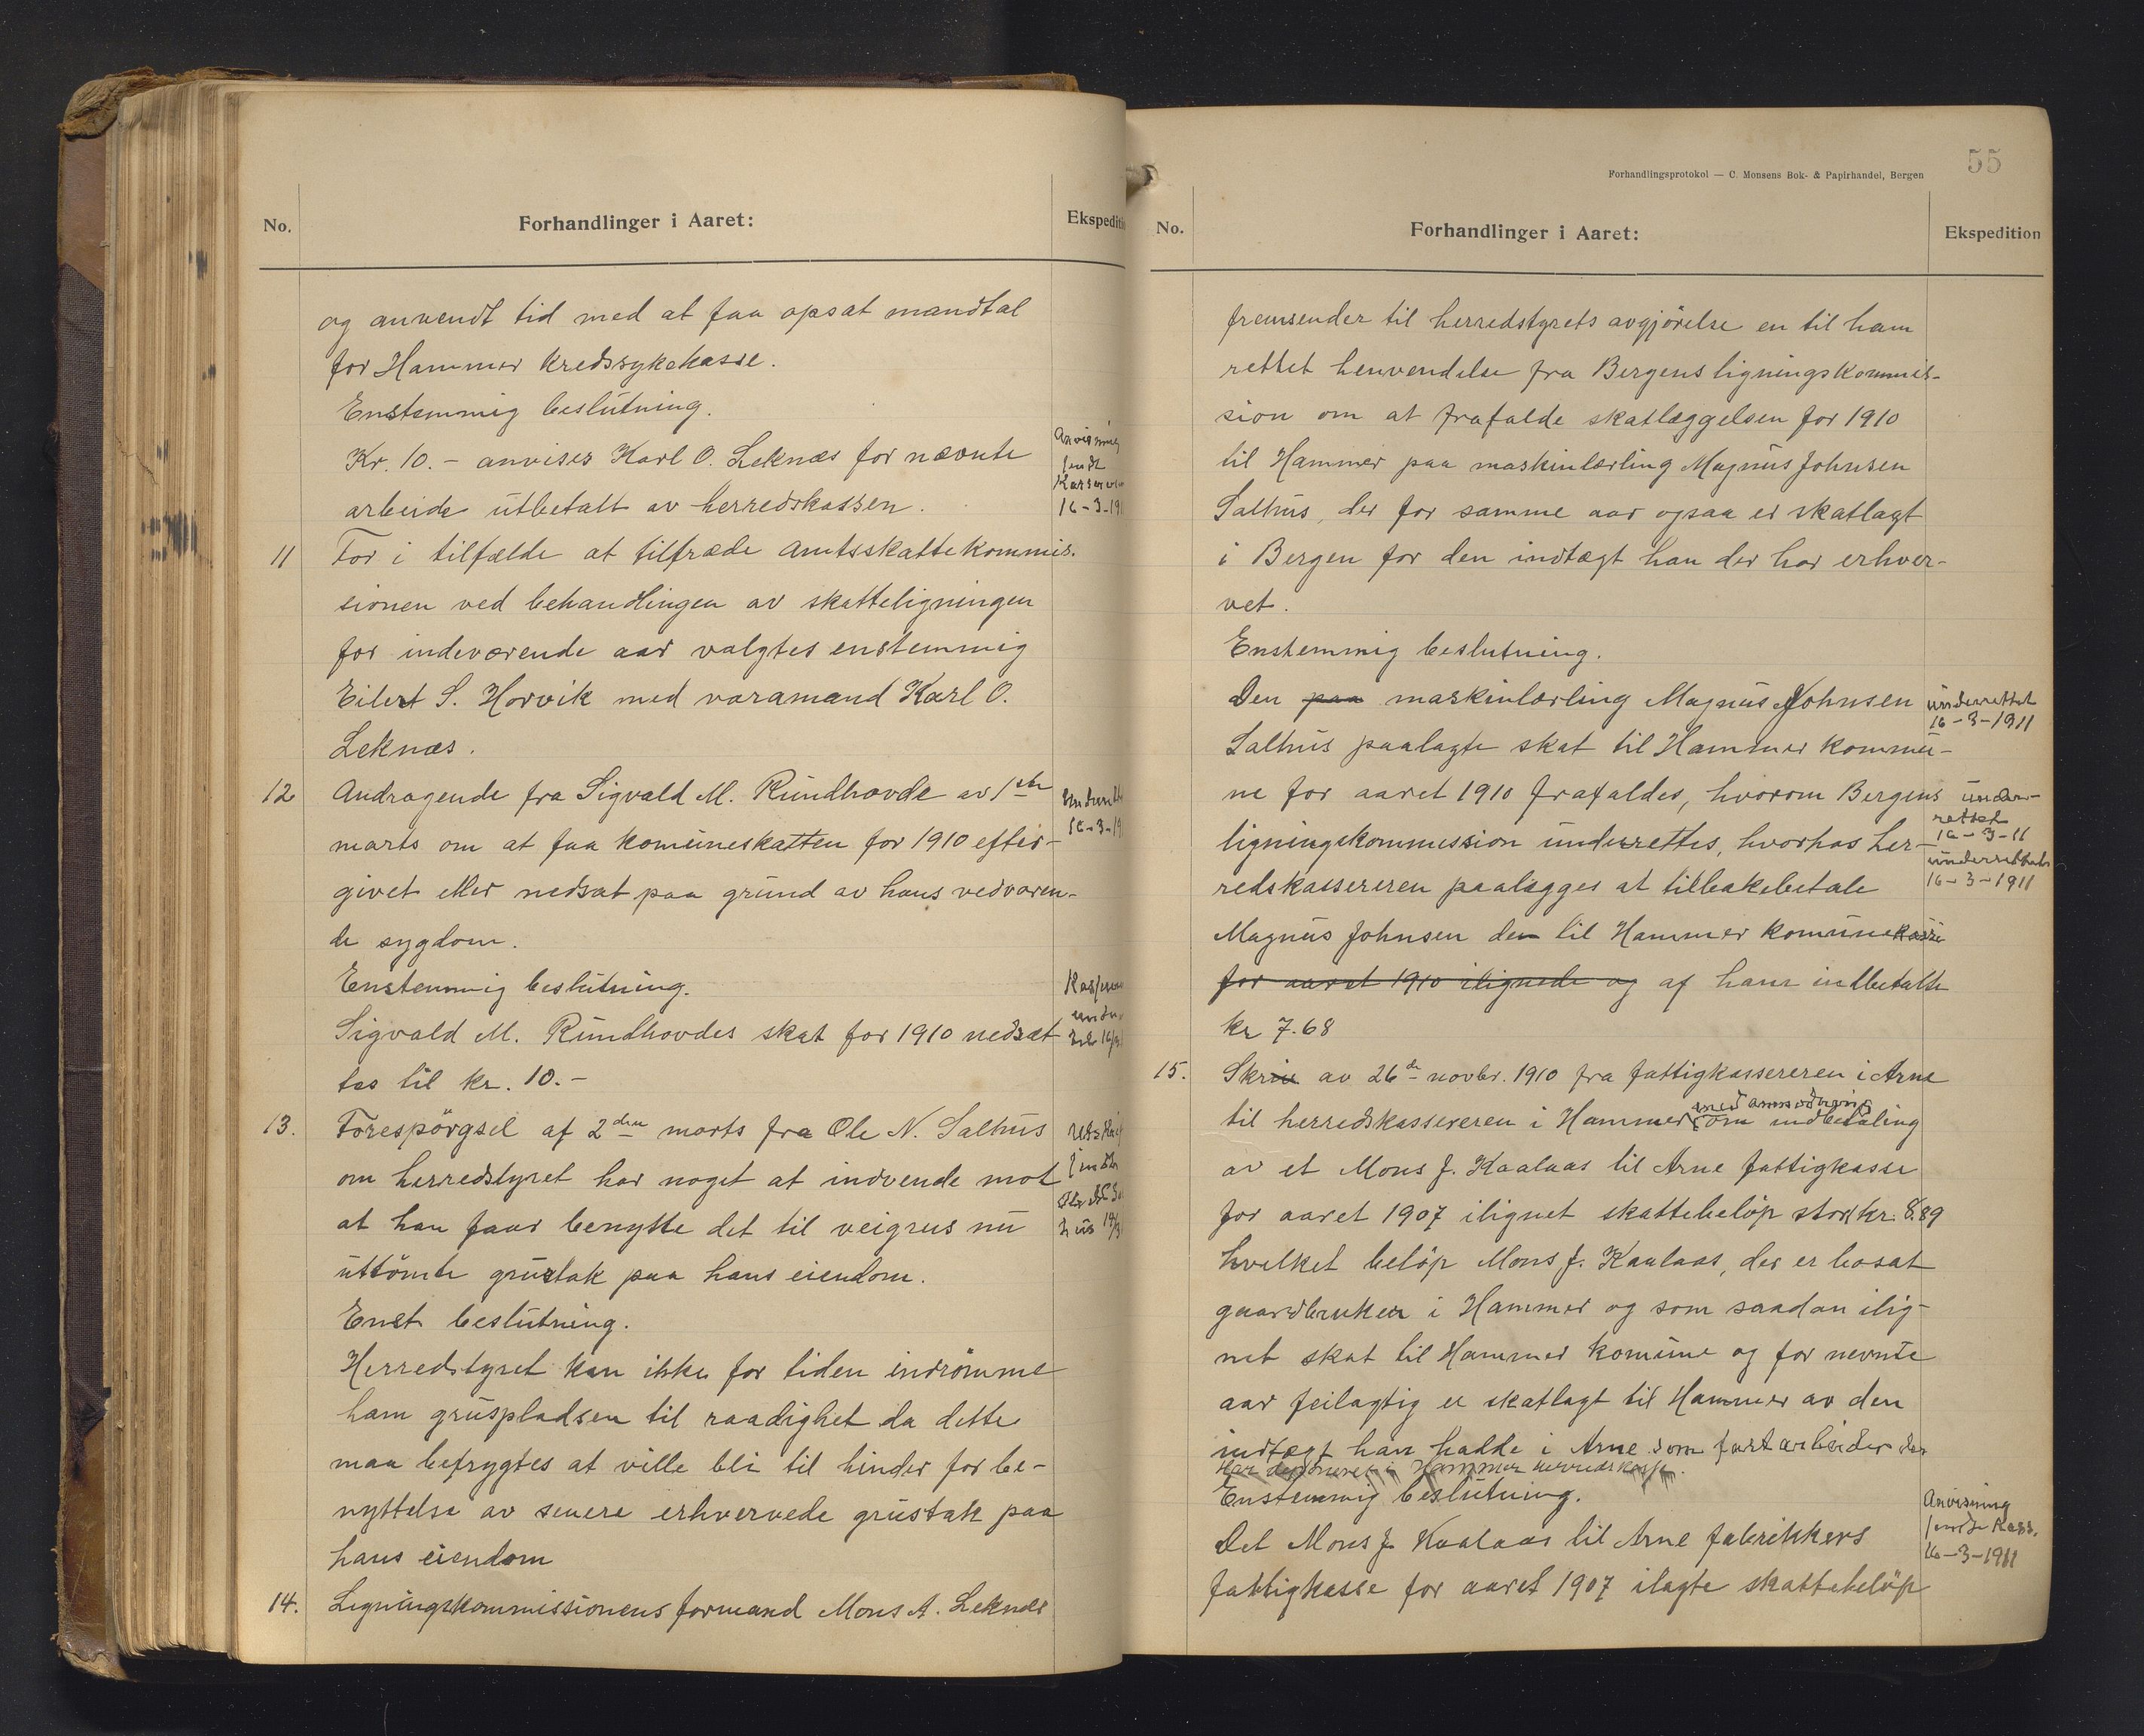 No. Forhandlinger i Aaret: Ekspedition
og anvendt tid med at faa opsat mandtal
for Hammer kredssykekasse.
Enstemmig beslutning.
Kr. 10.- anvises Karl O. Leknæs for nævnte
arbeide utbetalt av herredskassen.
Anvisning
sendt
Kasserer
16-3-191
11 For i tilfælde at tilfræde amtsskattekommis-
sionen ved behandlingen av skatteligningen
for indeværende aar valgtes enstemmig
Eilert S. Horvik med varamand Karl O.
Leknæs.
12 Andragende fra Sigvald M. Rundhovde av 1ste
marts om at faa komuneskatten for 1910 efter-
givet eller nedsat paa grund av hans vedvaren-
de sygdom.
16-3-19
Enstemmig beslutning.
Sigvald M. Rundhovdes skat for 1910 nedsæt
tes til kr. 10.-
13. Forespörgsel af 2den marts fra Ole N. Salhus
om herredstyret har noget at indvende mot
at han faar benytte det til veigrus nu
uttömte grustak paa hans eiendom.
Enst beslutning.
Herredstyret kan ikke for tiden indrömme
ham gruspladsen til raadighet da dette
maa befrygtes at ville bli til hinder for be-
nyttelse av senere erhvervede grustak paa
hans eiendom
14. Ligningskommissionens formand Mons A. Leknes
55
Forhandlingsprotokol — C. Monsens Bok- & Papirhandel, Bergen
No. Forhandlinger i Aaret: Ekspedition
fremsender til herredstyrets avgjörelse en til ham
rettet henvendelse fra Bergens ligningskommis-
sion om at frafalde skatlæggelsen for 1910
til Hammer paa maskinlærling Magnus Johnsen
Salhus, der for samme aar ogsaa er skatlagt
i Bergen for den indtægt han der har erhver-
vet.
Enstemmig beslutning.
Den paa maskinlærling Magnus Johnsen
Salhus paalagte skat til Hammer kommu-
ne for aaret 1910 frafaldes, hvorom Bergens
ligningskommission underrettes, hvorhos her-
redskassereren paalægges at tilbakebetale
Magnus Johnsen den til Hammer komunekasse
for aaret 1910 ilignede og af ham indbetalte
kr 7.68
underrettet
16-3-1911
under-
rettet
16-3-11
underrettet
16-3-1911
15. Skriv av 26de novbr. 1910 fra fattigkassereren i Arne
til herredskassereren i Hammer med anmodning om indbetaling
av et Mons J. Kaalaas til Arne fattigkasse
for aaret 1907 ilignet skattebelöp stort kr. 8.89
hvilket belöp Mons J. Kaalaas, der er bosat
gaardbruker i Hammer og som saadan ilig-
net skat til Hammer komune og for nevnte
aar feilagtig er skatlagt til Hammer av den
indtægt han hadde i Arne som fast arbeider der
har deponeret i Hammer herredskasse.
Enstemmig beslutning.
Det Mons J. Kaalaas til Arne fabrikkers
fattigkasse for aaret 1907 ilagte skattebelöp
Anvisning
sendt Kass.
16-3-1911